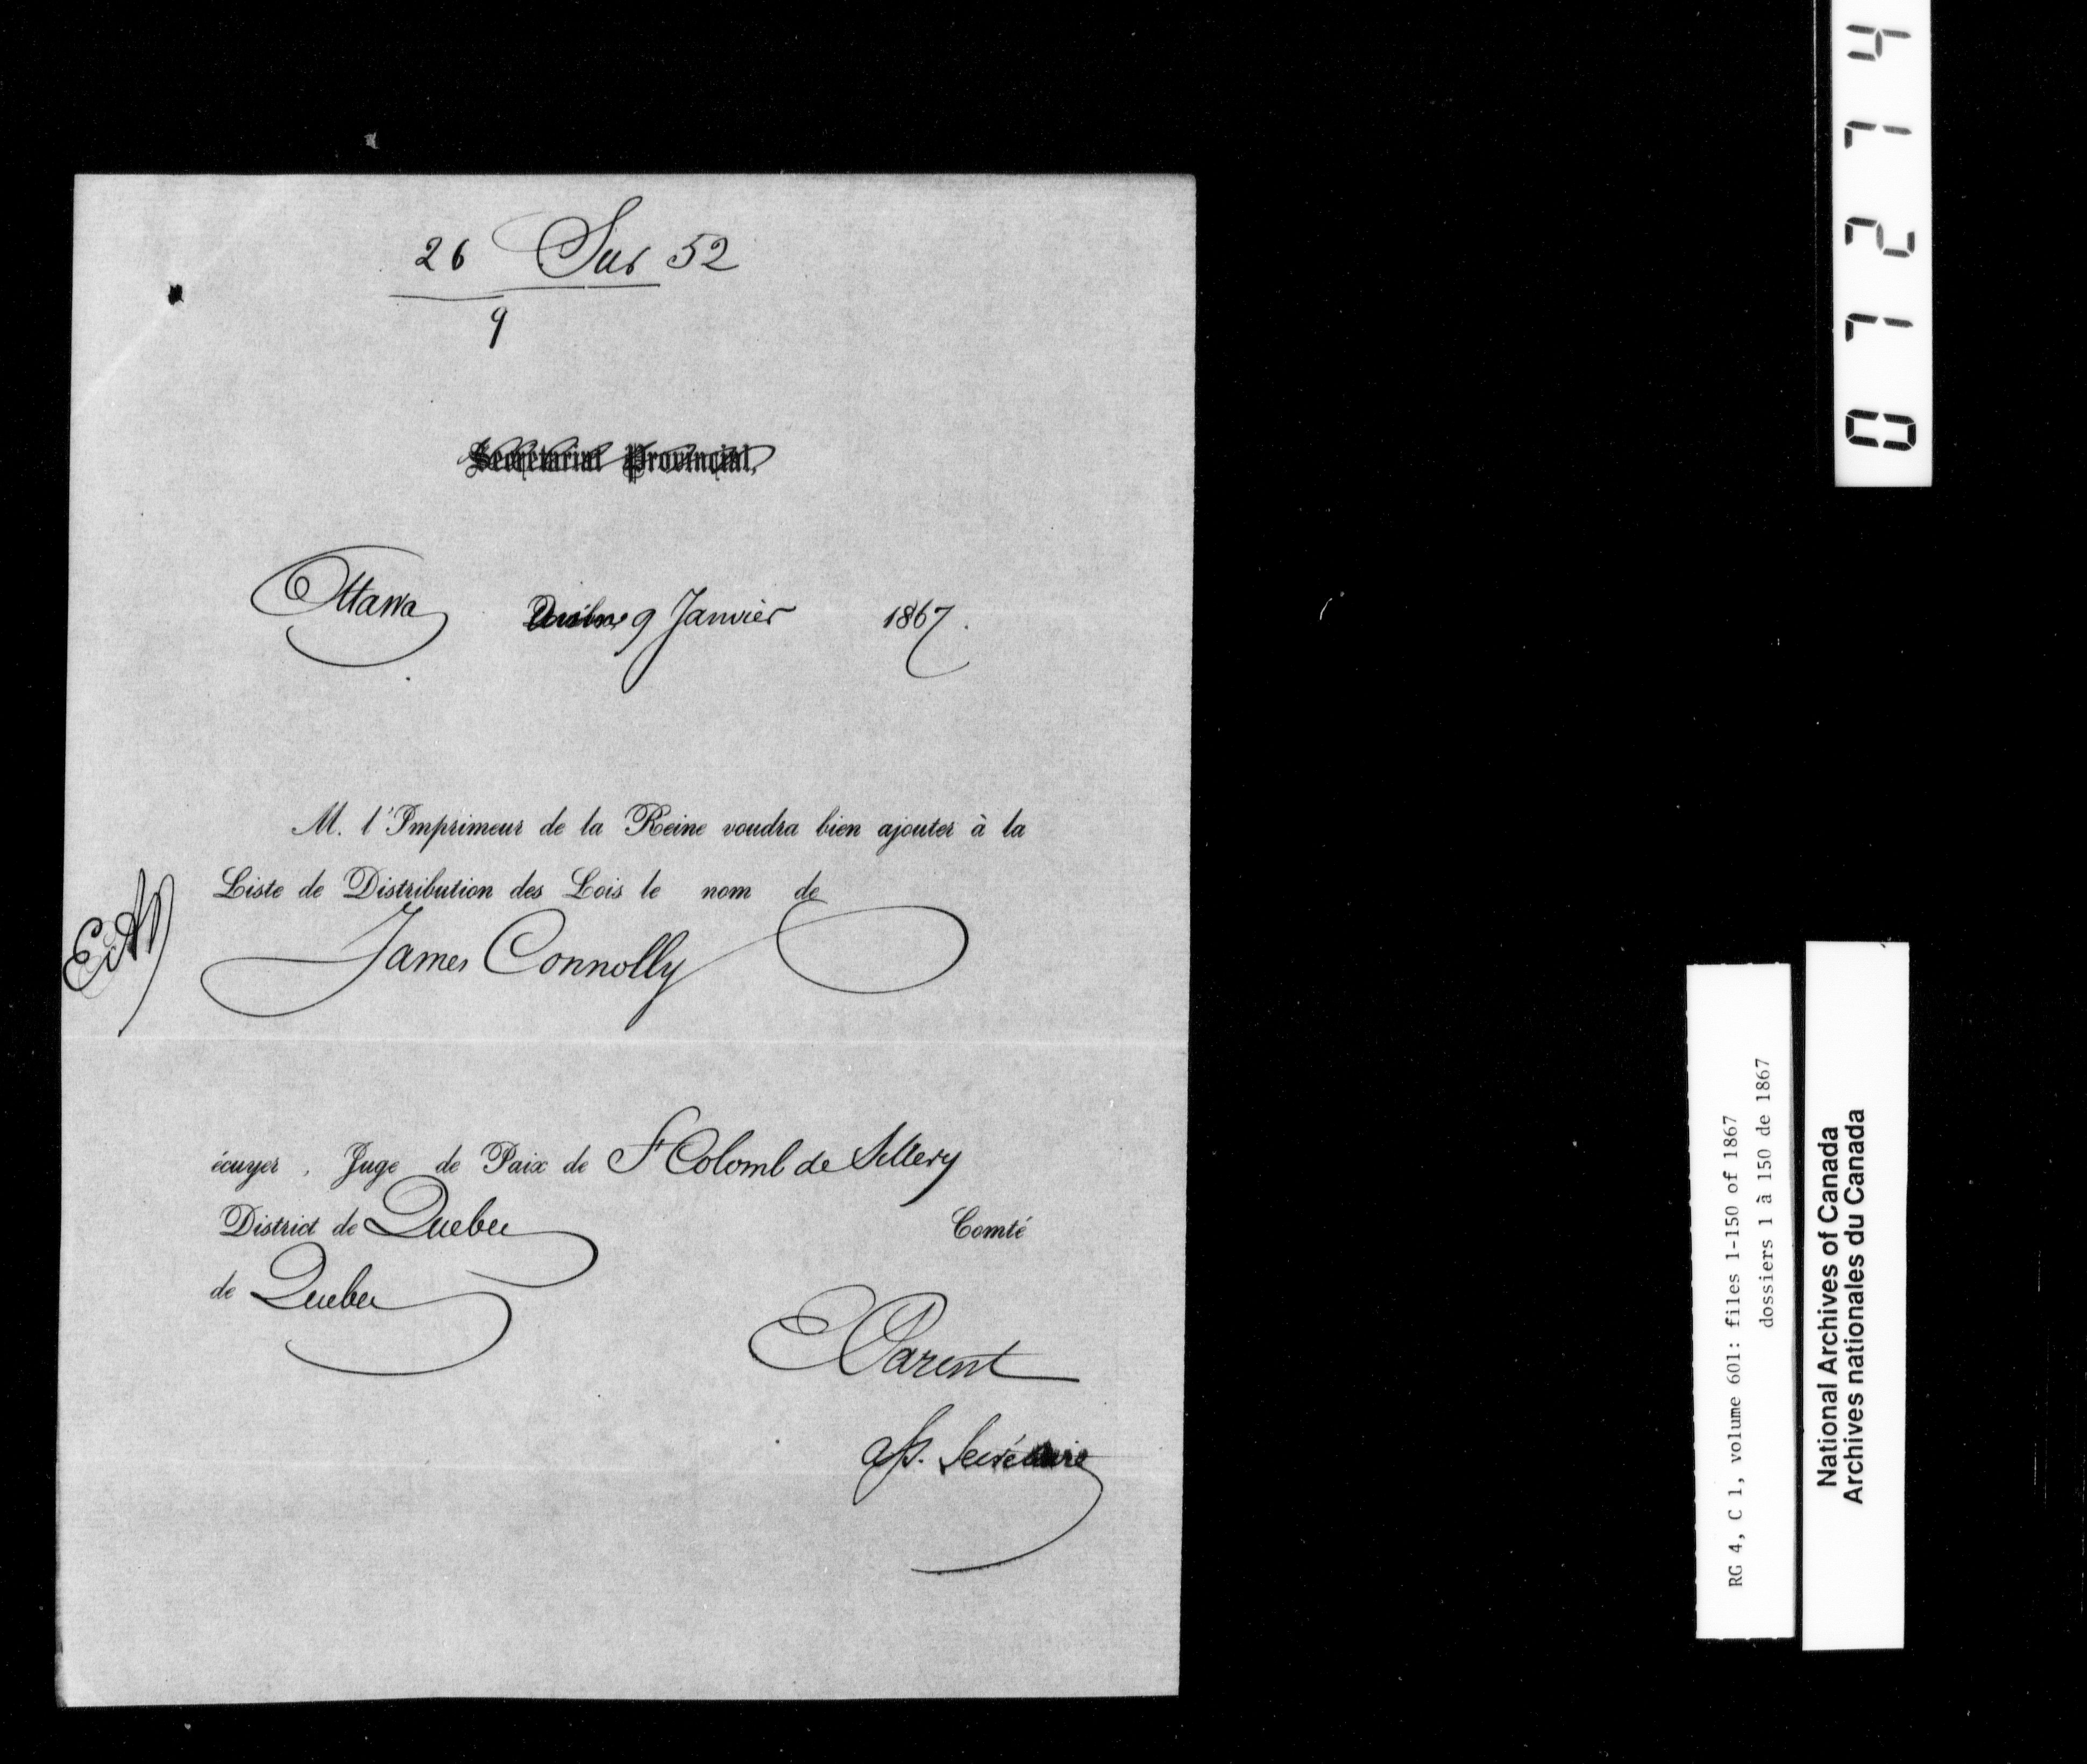 26 Sur 52
9
Secrétariat Provincial,
Ottawa Québec 9 Janvier 1867.
M. l'Imprimeur de la Reine voudra bien ajouter à la
Liste de Distribution des Lois le nom de
James Connolly
écuyer, Juge de Paix de St Colomb de Sillery
District de Quebec Comté
de Quebec
E Parent
Ass. Secrétaire
07174
RG 4, C 1, volume 601: files 1-150 of 1867
dossiers 1 à 150 de 1867
National Archives of Canada
Archives nationales du Canada